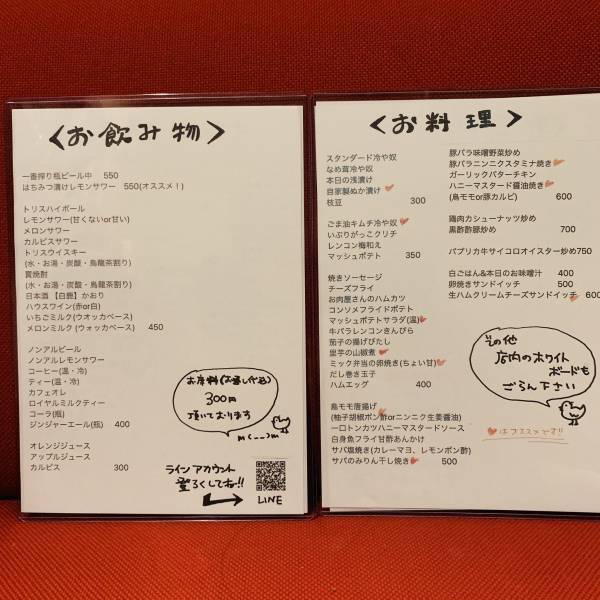 〈お飲み物〉
一番搾り瓶ビール中 550
はちみつ漬けレモンサワー 550(オススメ！)
トリスハイボール
レモンサワー(甘くないor甘い)
メロンサワー
カルピスサワー
トリスウイスキー
(水・お湯・炭酸・烏龍茶割り)
買焼酎
(水・お湯・炭酸・烏龍茶割り)
日本酒 【白鹿】かおり
ハウスワイン(赤or白)
いちごミルク(ウオッカベース)
メロンミルク (ウォッカベース) 450
ノンアルビール
ノンアルレモンサワー
コーヒー(温・冷)
ティー(温・冷)
カフェオレ
ロイヤルミルクティー
コーラ(瓶)
ジンジャーエール(瓶) 400
オレンジジュース
アップルジュース
カルピス 300
お席料(お通し代込)
300円
頂いております
m(__)m
ラインアカウント
登ろくしてね!!
LINE
〈お料理〉
スタンダード冷や奴
なめ茸冷や奴
本日の浅漬け
自家製ぬか漬け
枝豆 300
ごま油キムチ冷や奴
いぶりがっこクリチ
レンコン梅和え
マッシュポテト 350
焼きソーセージ
チーズフライ
お肉屋さんのハムカツ
コンソメフライドポテト
マッシュポテトサラダ(温)
牛バラレンコンきんぴら
茄子の揚げびたし
里芋の山椒煮
ミック弁当の卵焼き(ちょい甘)
だし巻き玉子
ハムエッグ 400
鳥モモ唐揚げ
(柚子胡椒ポン酢orニンニク生姜醤油)
一口トンカツハニーマスタードソース
白身魚フライ甘酢あんかけ
サバ塩焼き(カレーマヨ、レモンポン酢)
サバのみりん干し焼き 500
豚バラ味噌野菜炒め
豚バラニンニクスタミナ焼き
ガーリックバターチキン
ハニーマスタード醤油焼き
(鳥モモor豚カルビ) 600
鶏肉カシューナッツ炒め
黒酢酢豚炒め 700
パプリカ牛サイコロオイスター炒め750
白ごはん&本日のお味噌汁 400
卵焼きサンドイッチ 500
生ハムクリームチーズサンドイッチ 600
その他
店内のホワイト
ボードも
ごらん下さい
はオススメです!!